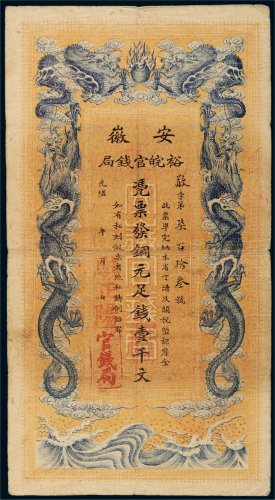 安徽
裕皖官錢局
敬字第柒百拾叁號
此票準完納本省丁漕及關稅鹽課釐金
憑票發銅元足錢壹千文
如有私刻假票者照私鑄例治罪
光緒 年 月 日
官錢局